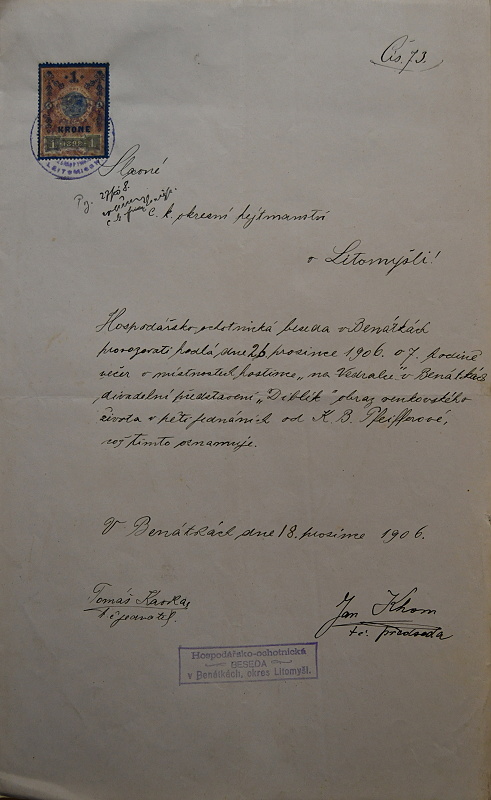 Čís. 73.
1
KRONE
1 1898 1
LEITOMISCHL
Slavné
c. k. okresní hejtmanství
v Litomyšli!
Hospodářsko-ochotnická beseda v Benátkách
provozovati hodlá dne 26 prosince 1906 o 7. hodině
večer v místnostech hostince „na Vedralce" v Benátkách
divadelní představení „Diblík" obraz venkovského
života v pěti jednáních od K. B. Pfeifferové,
což tímto oznamuje.
V Benátkách dne 18. prosince 1906.
Tomáš Kavka,
t. č. jednatel.
Jan
t. č. předseda
Hospodářsko-ochotnická
BESEDA
v Benátkách, okres Litomyšl.